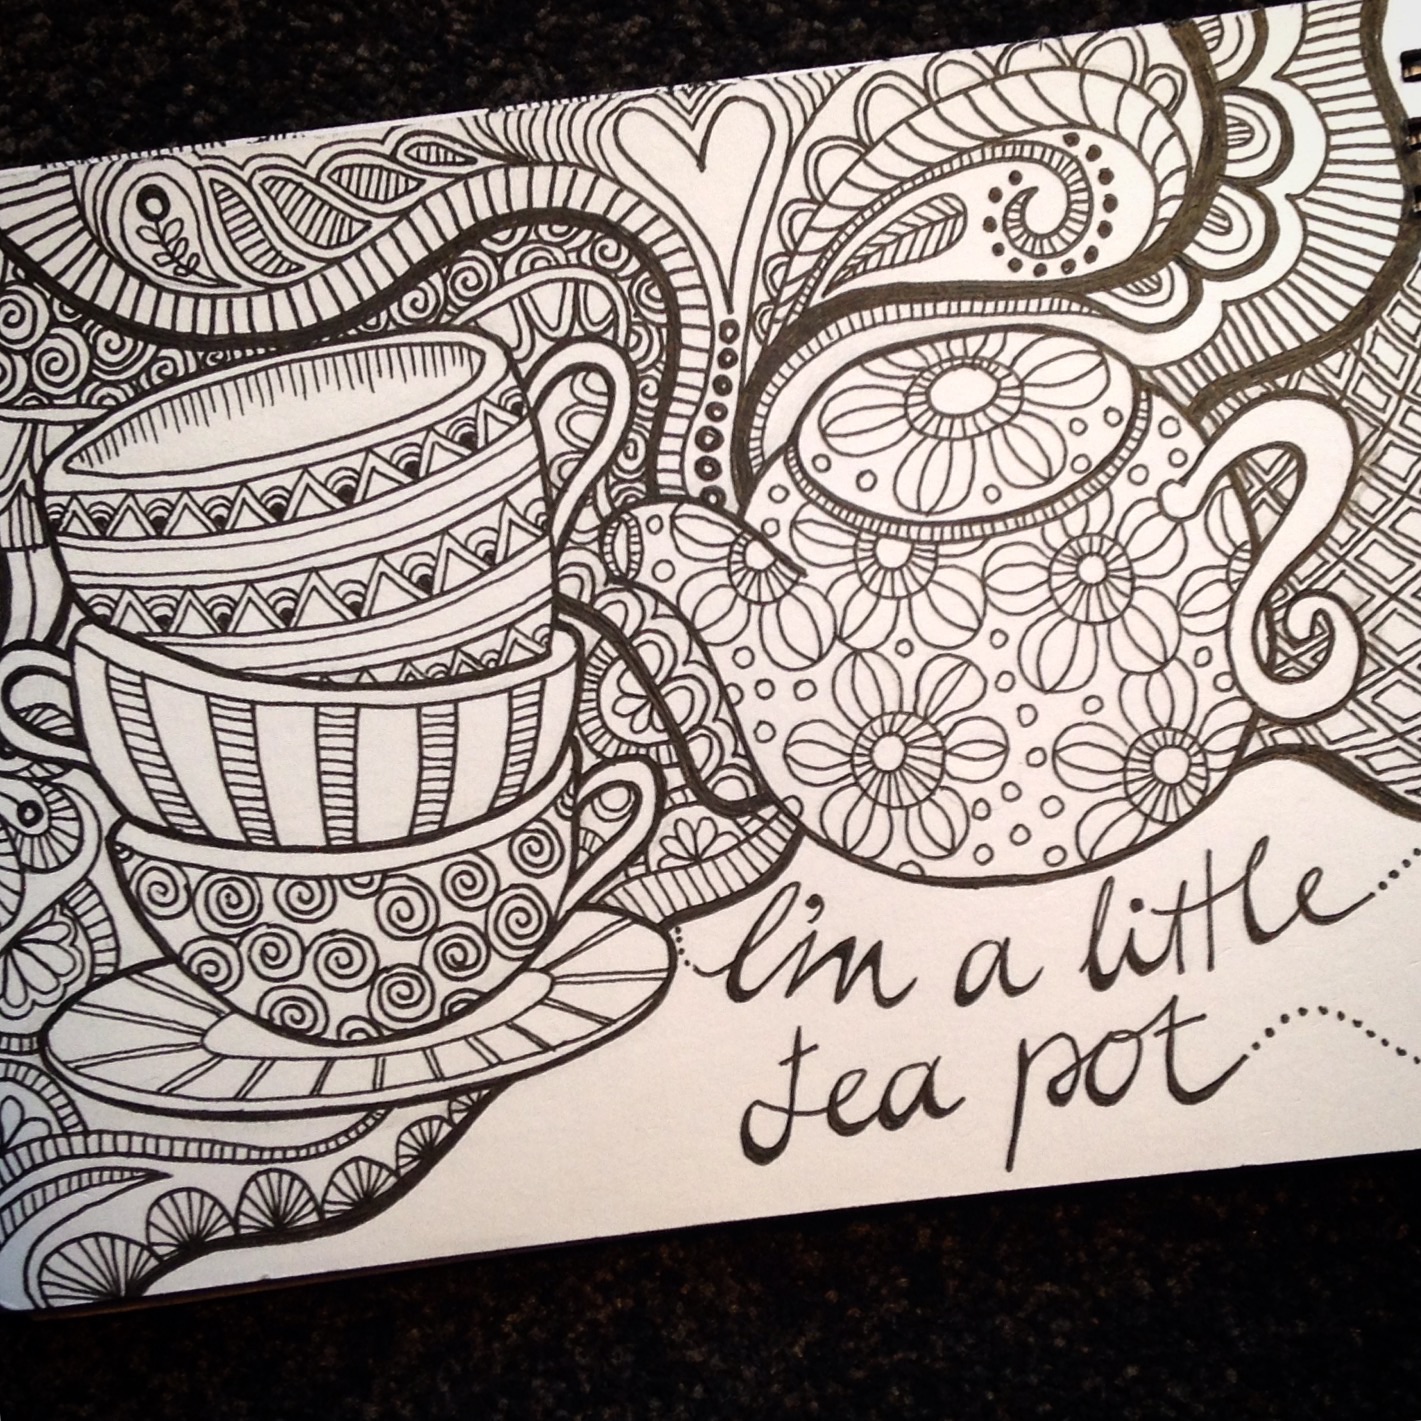 I'm a little
tea pot